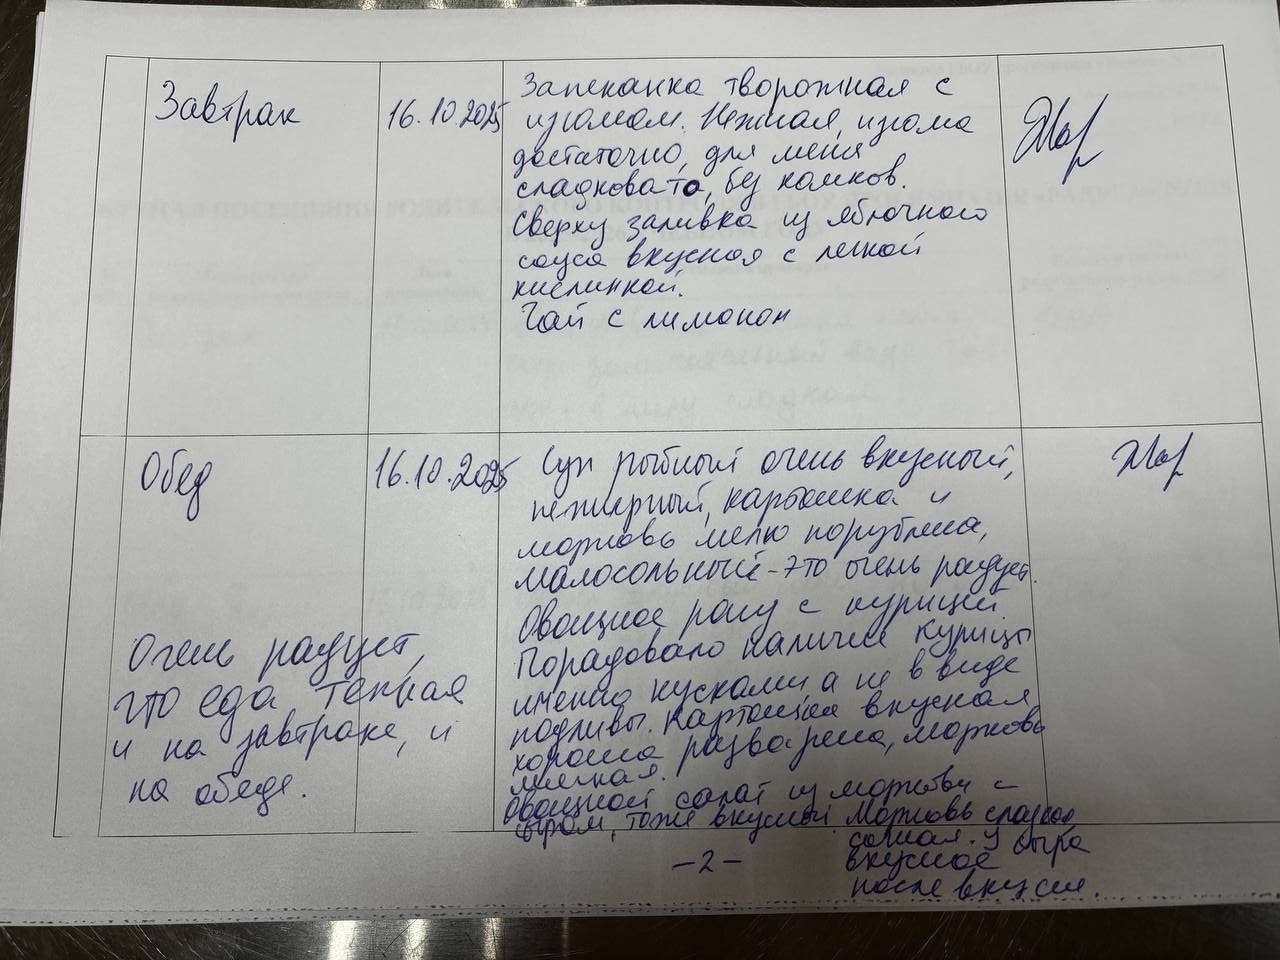 Завтрак
16.10.2025
Запеканка творожная с
изюмом. Нежная, изюма
достаточно, для меня
сладковата, без комков.
Сверху заливка из яблочного
соуса вкусная с легкой
кислинкой.
Чай с лимоном
Обед
16.10.2025
Суп рыбный очень вкусный,
нежирный, картошка и
морковь мелко порублена,
малосольный - это очень радует.
Овощное рагу с курицей
Порадовало наличие курицы
именно кусками, а не в виде
подливы. Картошка вкусная
хорошо разварена, морковь
мягкая.
Овощной салат из моркови с
сыром, тоже вкусный. Морковь сладкая
сочная. У сыра
вкусное
послевкусие.
Очень радует,
что еда теплая
и на завтраке, и
на обеде.
-2-